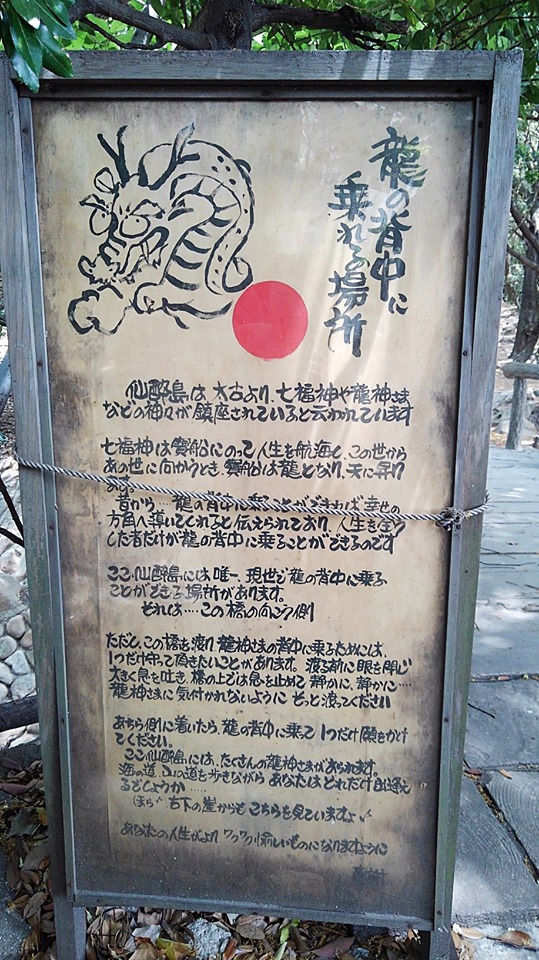 龍の背中に
乗れる場所
仙酔島は、太古より、七福神や龍神さま
などの神々が鎮座されていると云われています
七福神は寶船にのって人生を航海し、この世から
あの世に向かうとき、寶船は龍となり、天に昇り
ます。
昔から、龍の背中に乗ることができれば幸せの
方角へ導いてくれると伝えられており、人生を全う
した者だけが龍の背中に乗ることができるのです
ここ仙酔島には唯一、現世で龍の背中に乗る
ことができる場所があります。
それは‥‥この橋の向こう側
ただし、この橋を渡り龍神さまの背中に乗るためには、
1つだけ守って頂きたいことがあります。渡る前に眼を閉じ
大きく息を吐き、橋の上では息を止めて静かに、静かに‥‥
龍神さまに気付かれないようにそっと渡ってください
あちら側に着いたら、龍の背中に乗って1つだけ願をかけ
てください。
ここ仙酔島には、たくさんの龍神さまがおられます。
海の道、山の道を歩きながらあなたはどれだけ出逢え
るでしょうか‥‥
ほら、右下の崖からもこちらを見ていますよ
あなたの人生がよりワクワク愉しいものになりますように